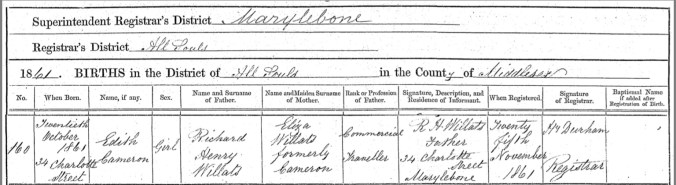 Superintendent Registrar's District Marylebone
Registrar's District All Souls
1861. BIRTHS in the District of All Souls in the County of Middlesex
No. When Born. Name, if any. Sex. Name and Surname of Father. Name and Maiden Surname of Mother. Rank or Profession of Father. Signature, Description, and Residence of Informant. When Registered. Signature of Registrar. Baptismal Name if added after Registration of Birth.
160 Twentieth October 1861 34 Charlotte Street Edith Cameron Girl Richard Henry Willats Eliza Willats formerly Cameron Commercial Traveller R H Willats Father 34 Charlotte Street Marylebone Twenty fifth November 1861 Durham Registrar